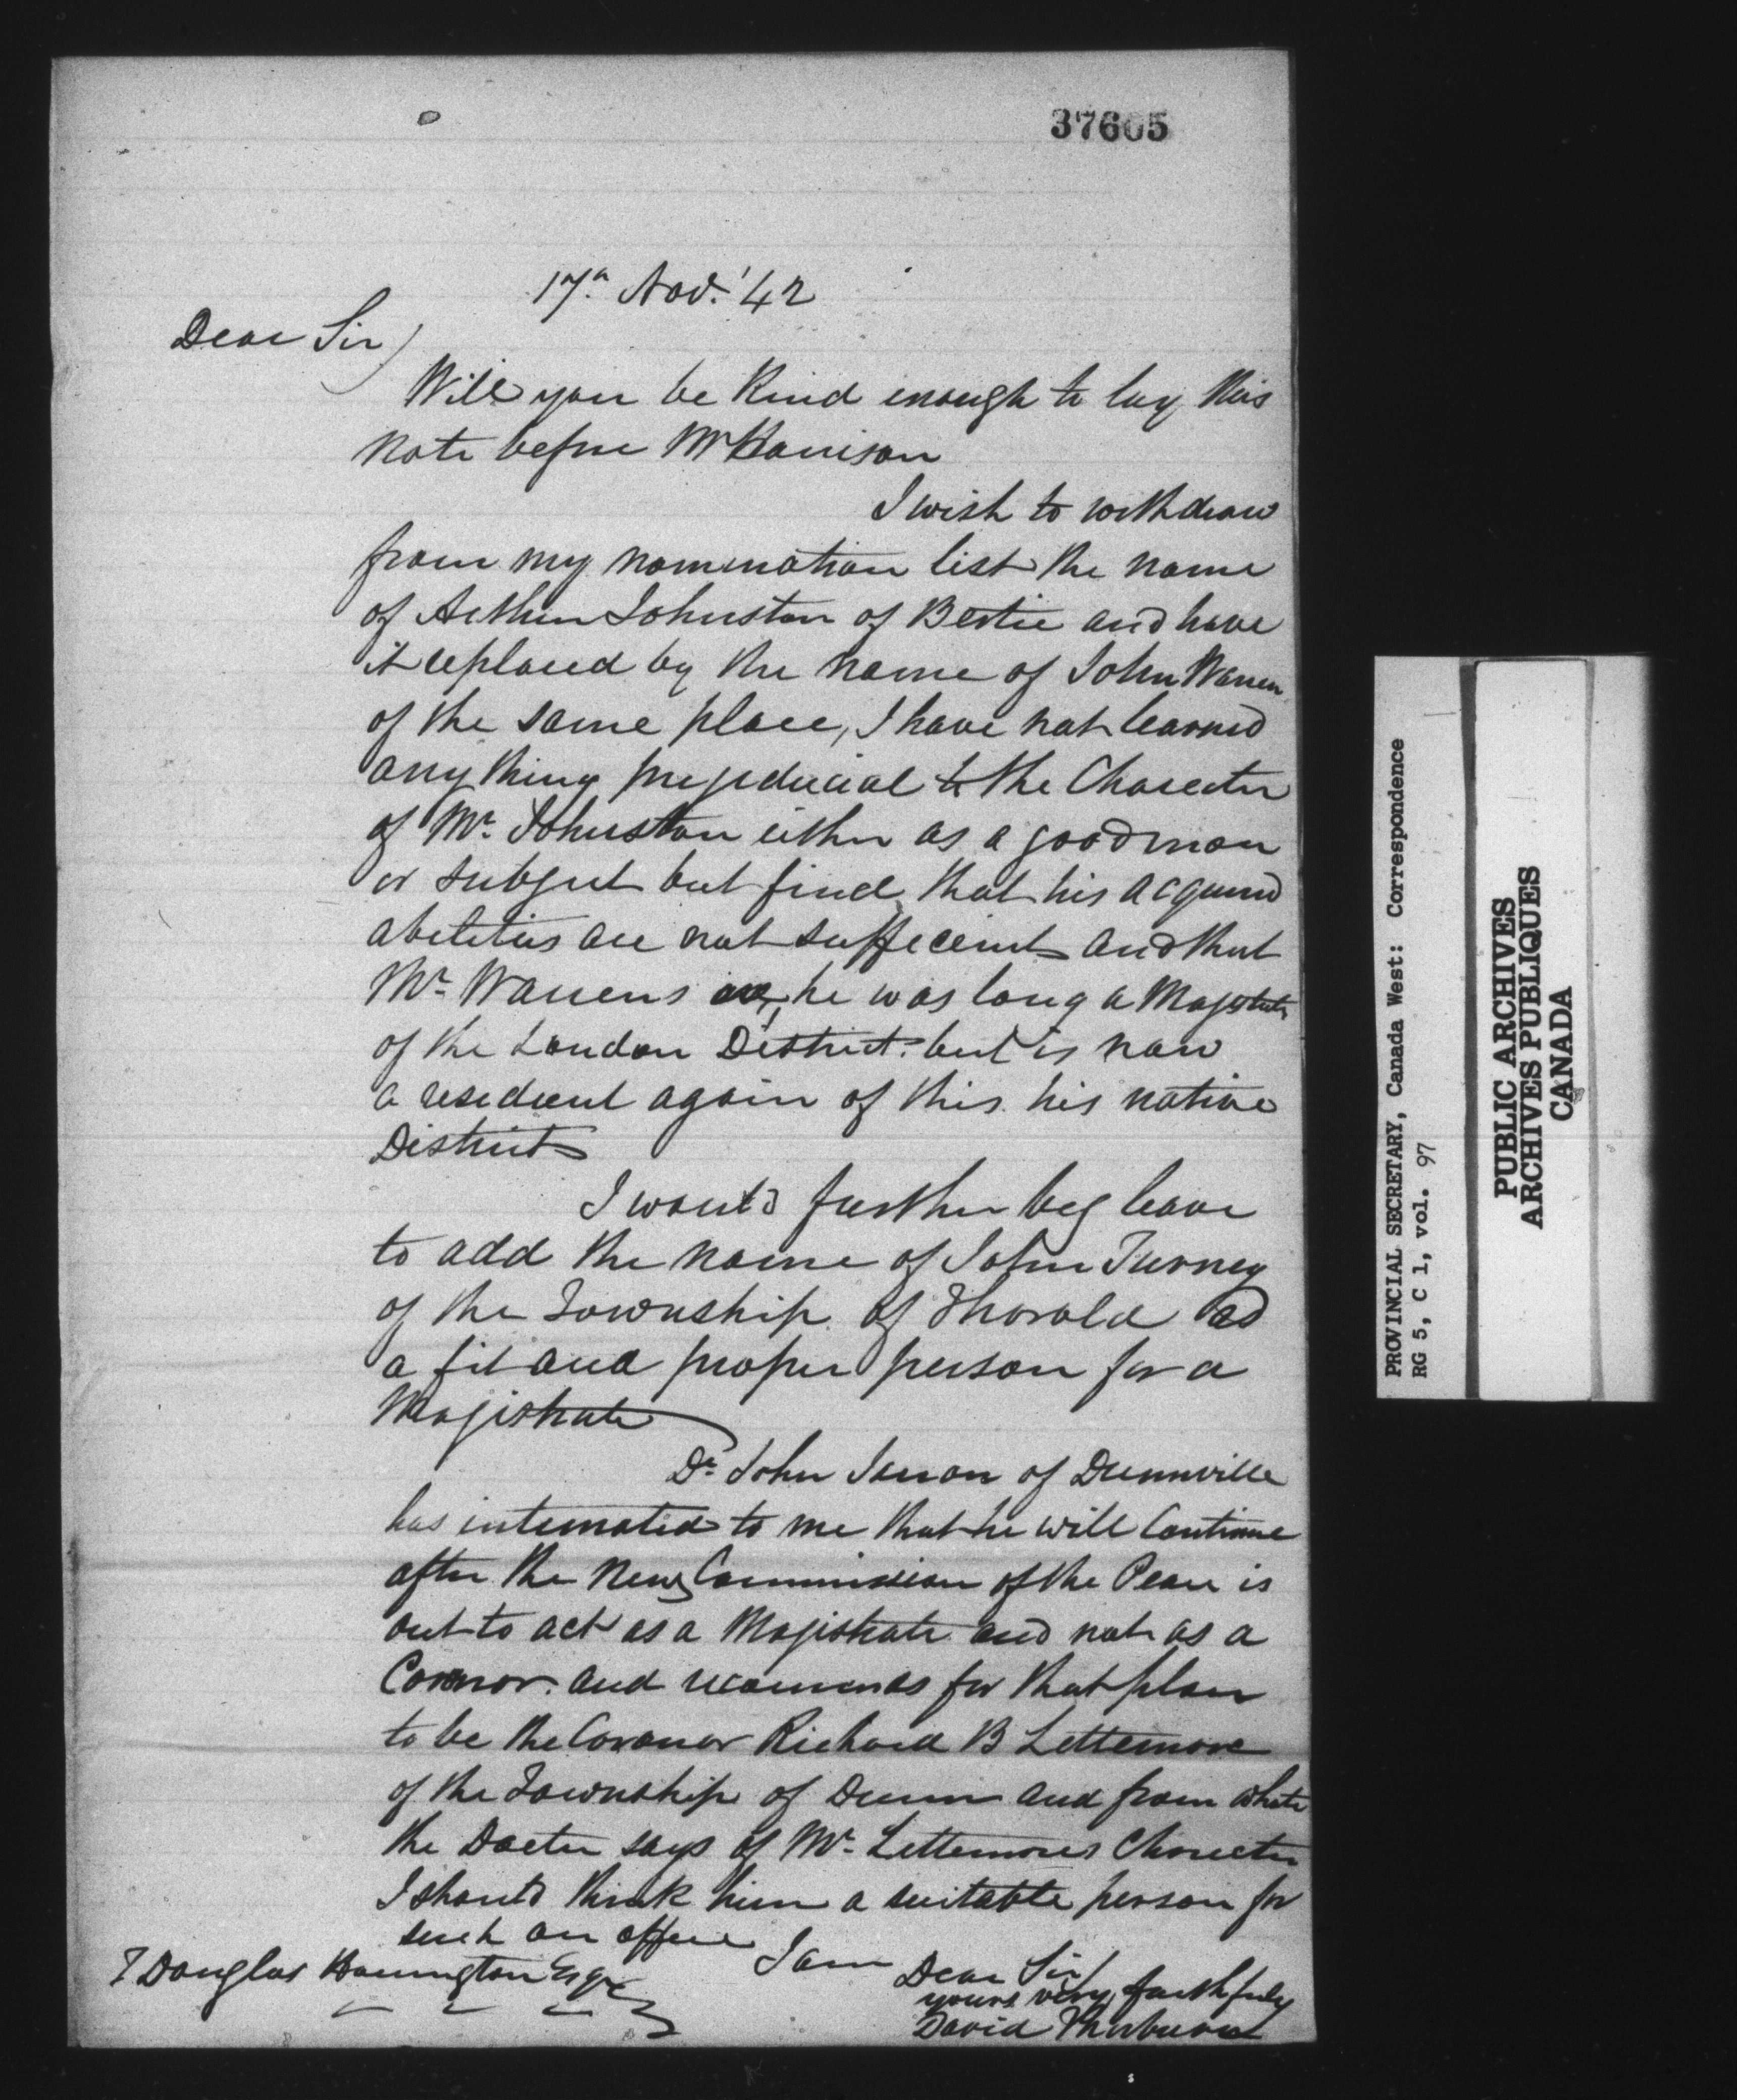 37605
17th Nov. '42
Dear Sir
Will you be kind enough to lay this
note before Mr Harrison
I wish to withdraw
from my nomination list the name
of Arthur Johnston of Bertie and have
it replaced by the name of John Warren
of the same place, I have not learned
any thing prejudicial to the Charecter
of Mr. Johnston either as a good man
or subject but find that his acquired
abilities are not suffecient and that
Mr. Warrens are, he was long a Magistrate
of the London District. but is now
a resident again of this his native
District
I would further beg leave
to add the name of John Turney
of the Township of Thorold as
a fit and proper person for a
Magistrate
Dr. John Jarron of Dunnville
has intimated to me that he will continue
after the new Commission of the Peace is
out to act as a Magistrate and not as a
Coronor. and recommends for that place
to be the Coronor Richard B Lettemore
of the Township of Dunn and from what
the Docter says of Mr. Lettemores Charecter
I should think him a suitable person for
such an office
I am Dear Sir
yours very faithfuly
David Thorburn
T Douglas Harrington Esqr
PROVINCIAL SECRETARY, Canada West: Correspondence
RG 5, C 1, vol. 97
PUBLIC ARCHIVES
ARCHIVES PUBLIQUES
CANADA